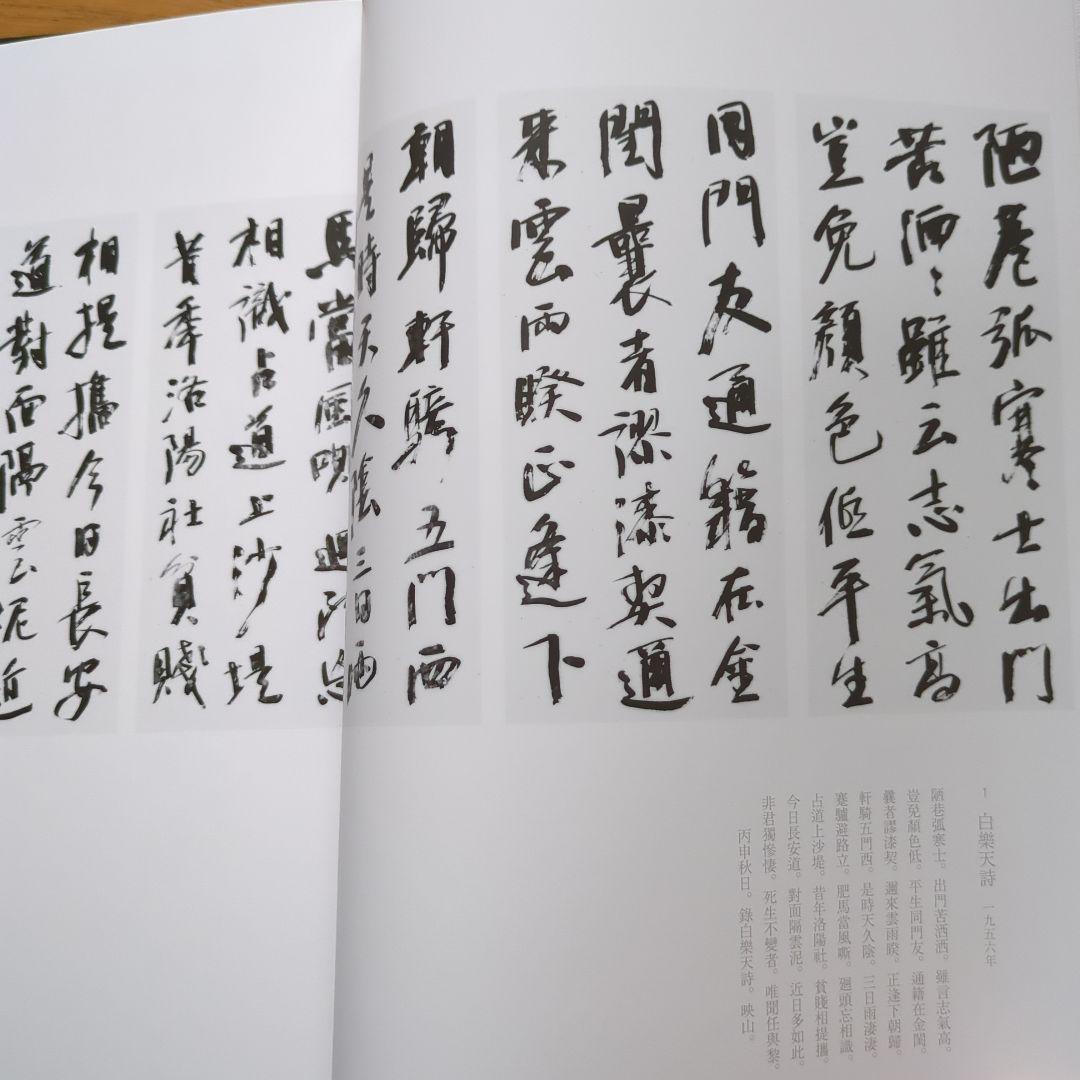 陋巷弧寒士出門
苦洒々雖云志氣高
豈免顏色低平生
同門友通籍在金
閨曩者謬漆契邇
来雲雨睽正逢下
朝歸軒騎五門西
是時天久陰三日雨
馬當風嘶迴頭忘
相識占道上沙堤
昔年洛陽社貧賤
相提攜今日長安
道對面隔雲泥近
1 白樂天詩 一九五六年
陋巷弧寒士。出門苦洒洒。雖言志氣高。
豈免顏色低。平生同門友。通籍在金閨。
曩者謬漆契。邇來雲雨睽。正逢下朝歸。
軒騎五門西。是時天久陰。三日雨淒淒。
蹇驢避路立。肥馬當風嘶。廻頭忘相識。
占道上沙堤。昔年洛陽社。貧賤相提攜。
今日長安道。對面隔雲泥。近日多如此。
非君獨慘悽。死生不變者。唯聞任與黎。
丙申秋日。錄白樂天詩。映山。